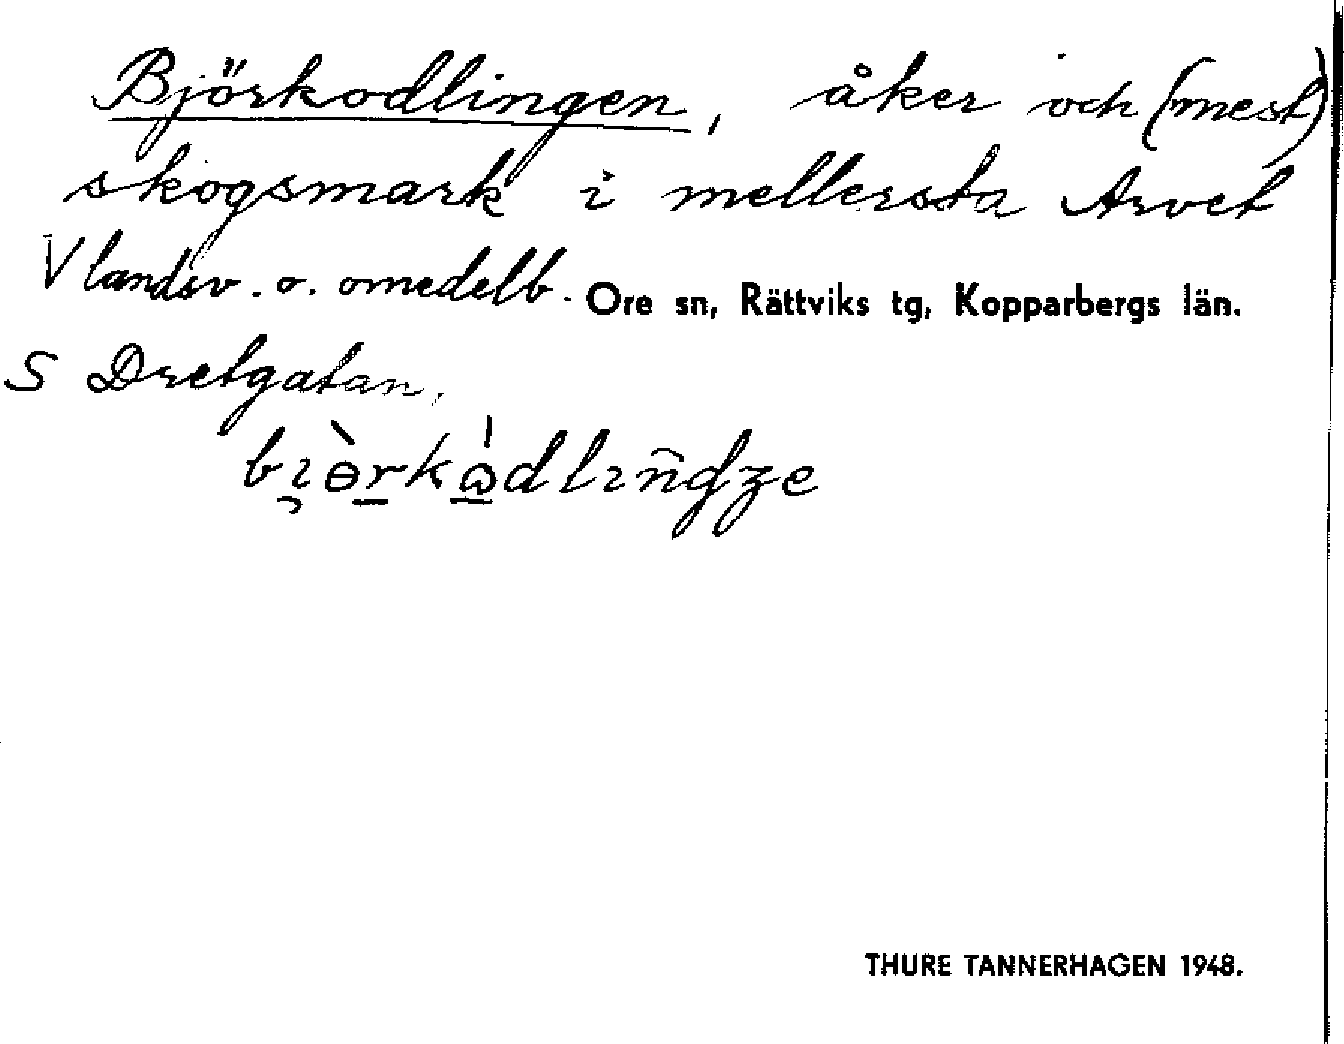 Björkodlingen, åker och (mest)
skogsmark i mellersta Arvet
V landsv. o. omedelb.
Ore sn, Rättviks tg, Kopparbergs län.
S Dretgatan.
bı̯ɵ̀rkɷ̀dlıñdʒe
THURE TANNERHAGEN 1948.